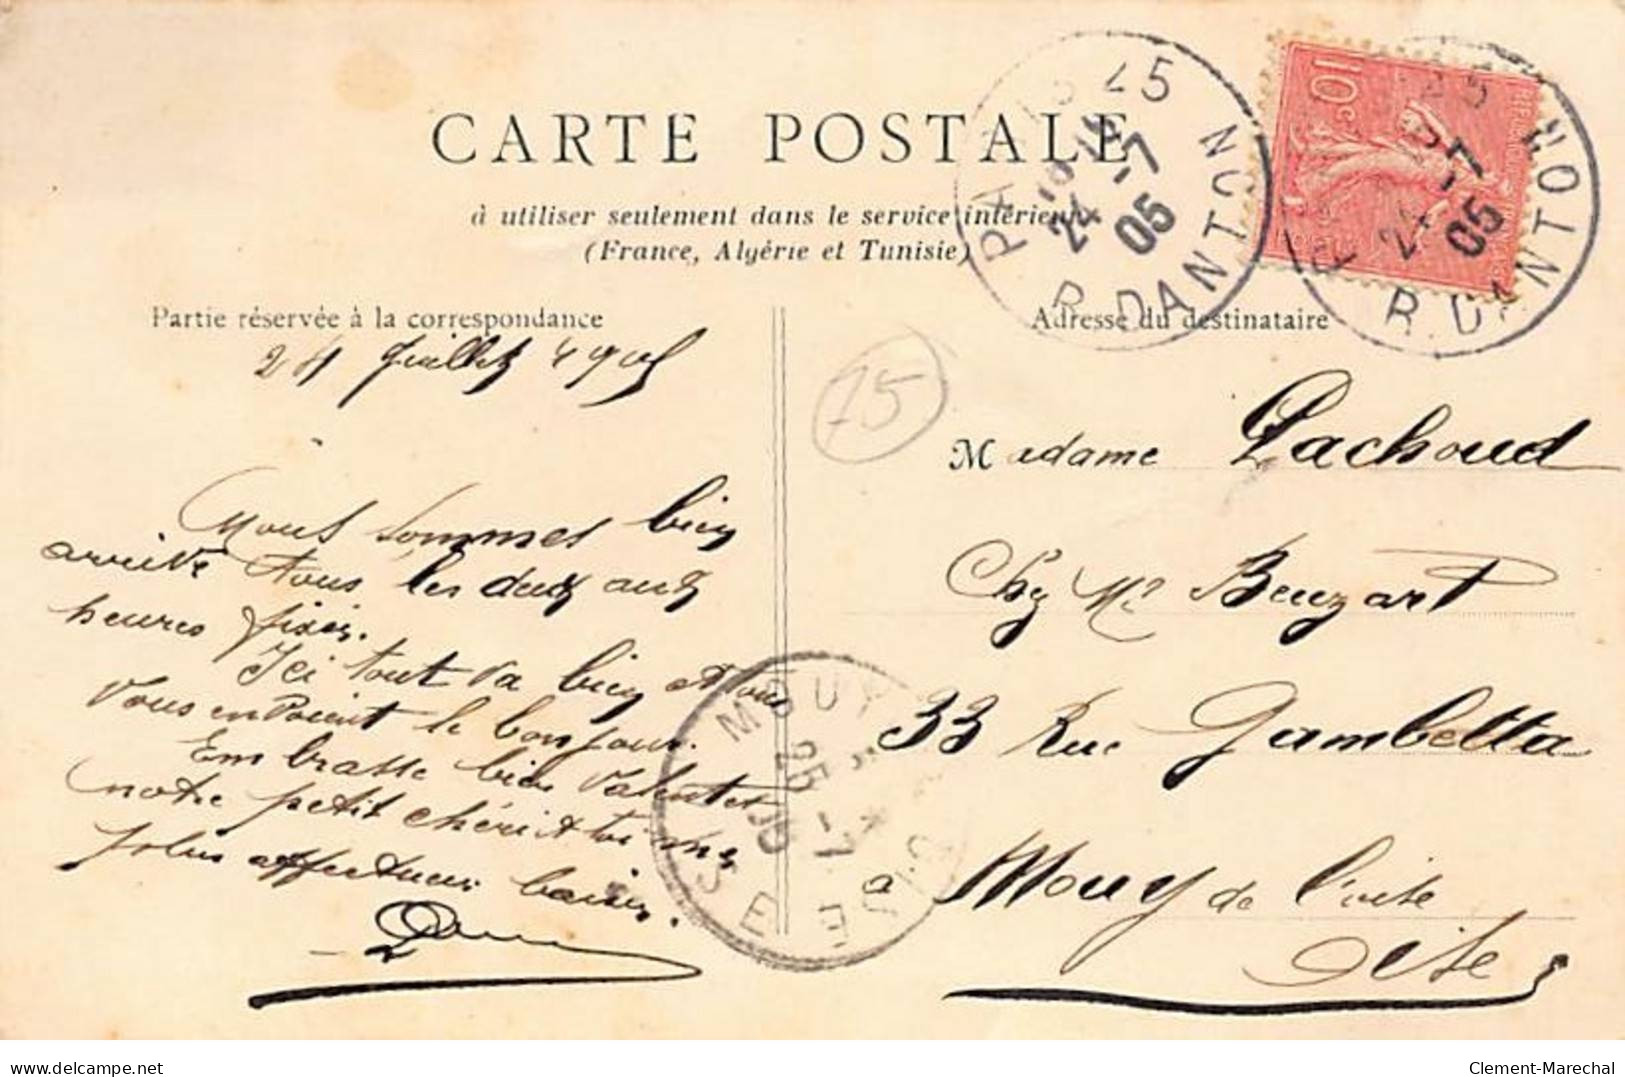 CARTE POSTALE
à utiliser seulement dans le service intérieur
(France, Algérie et Tunisie)
Partie réservée à la correspondance
24 Juillet 1905
Nous sommes bien
arrivé tous les deux aux
heures fixées.
Ici tout va bien et tous
vous envoient le bonjour.
Embrasse bien Valent et
notre petit chéri et toi mes
plus affectueux baisers.
Adresse du destinataire
Madame Lachoud
Chez Mr Beuzart
33 Rue Gambetta
a Mouy de l'oise
Oise
PARIS 25
24 -7
05
R. DANTON
10c
25
24 -7
05
R. DANTON
75
MOUY
25 -7
05
OISE
delcampe.net
Clement-Marechal